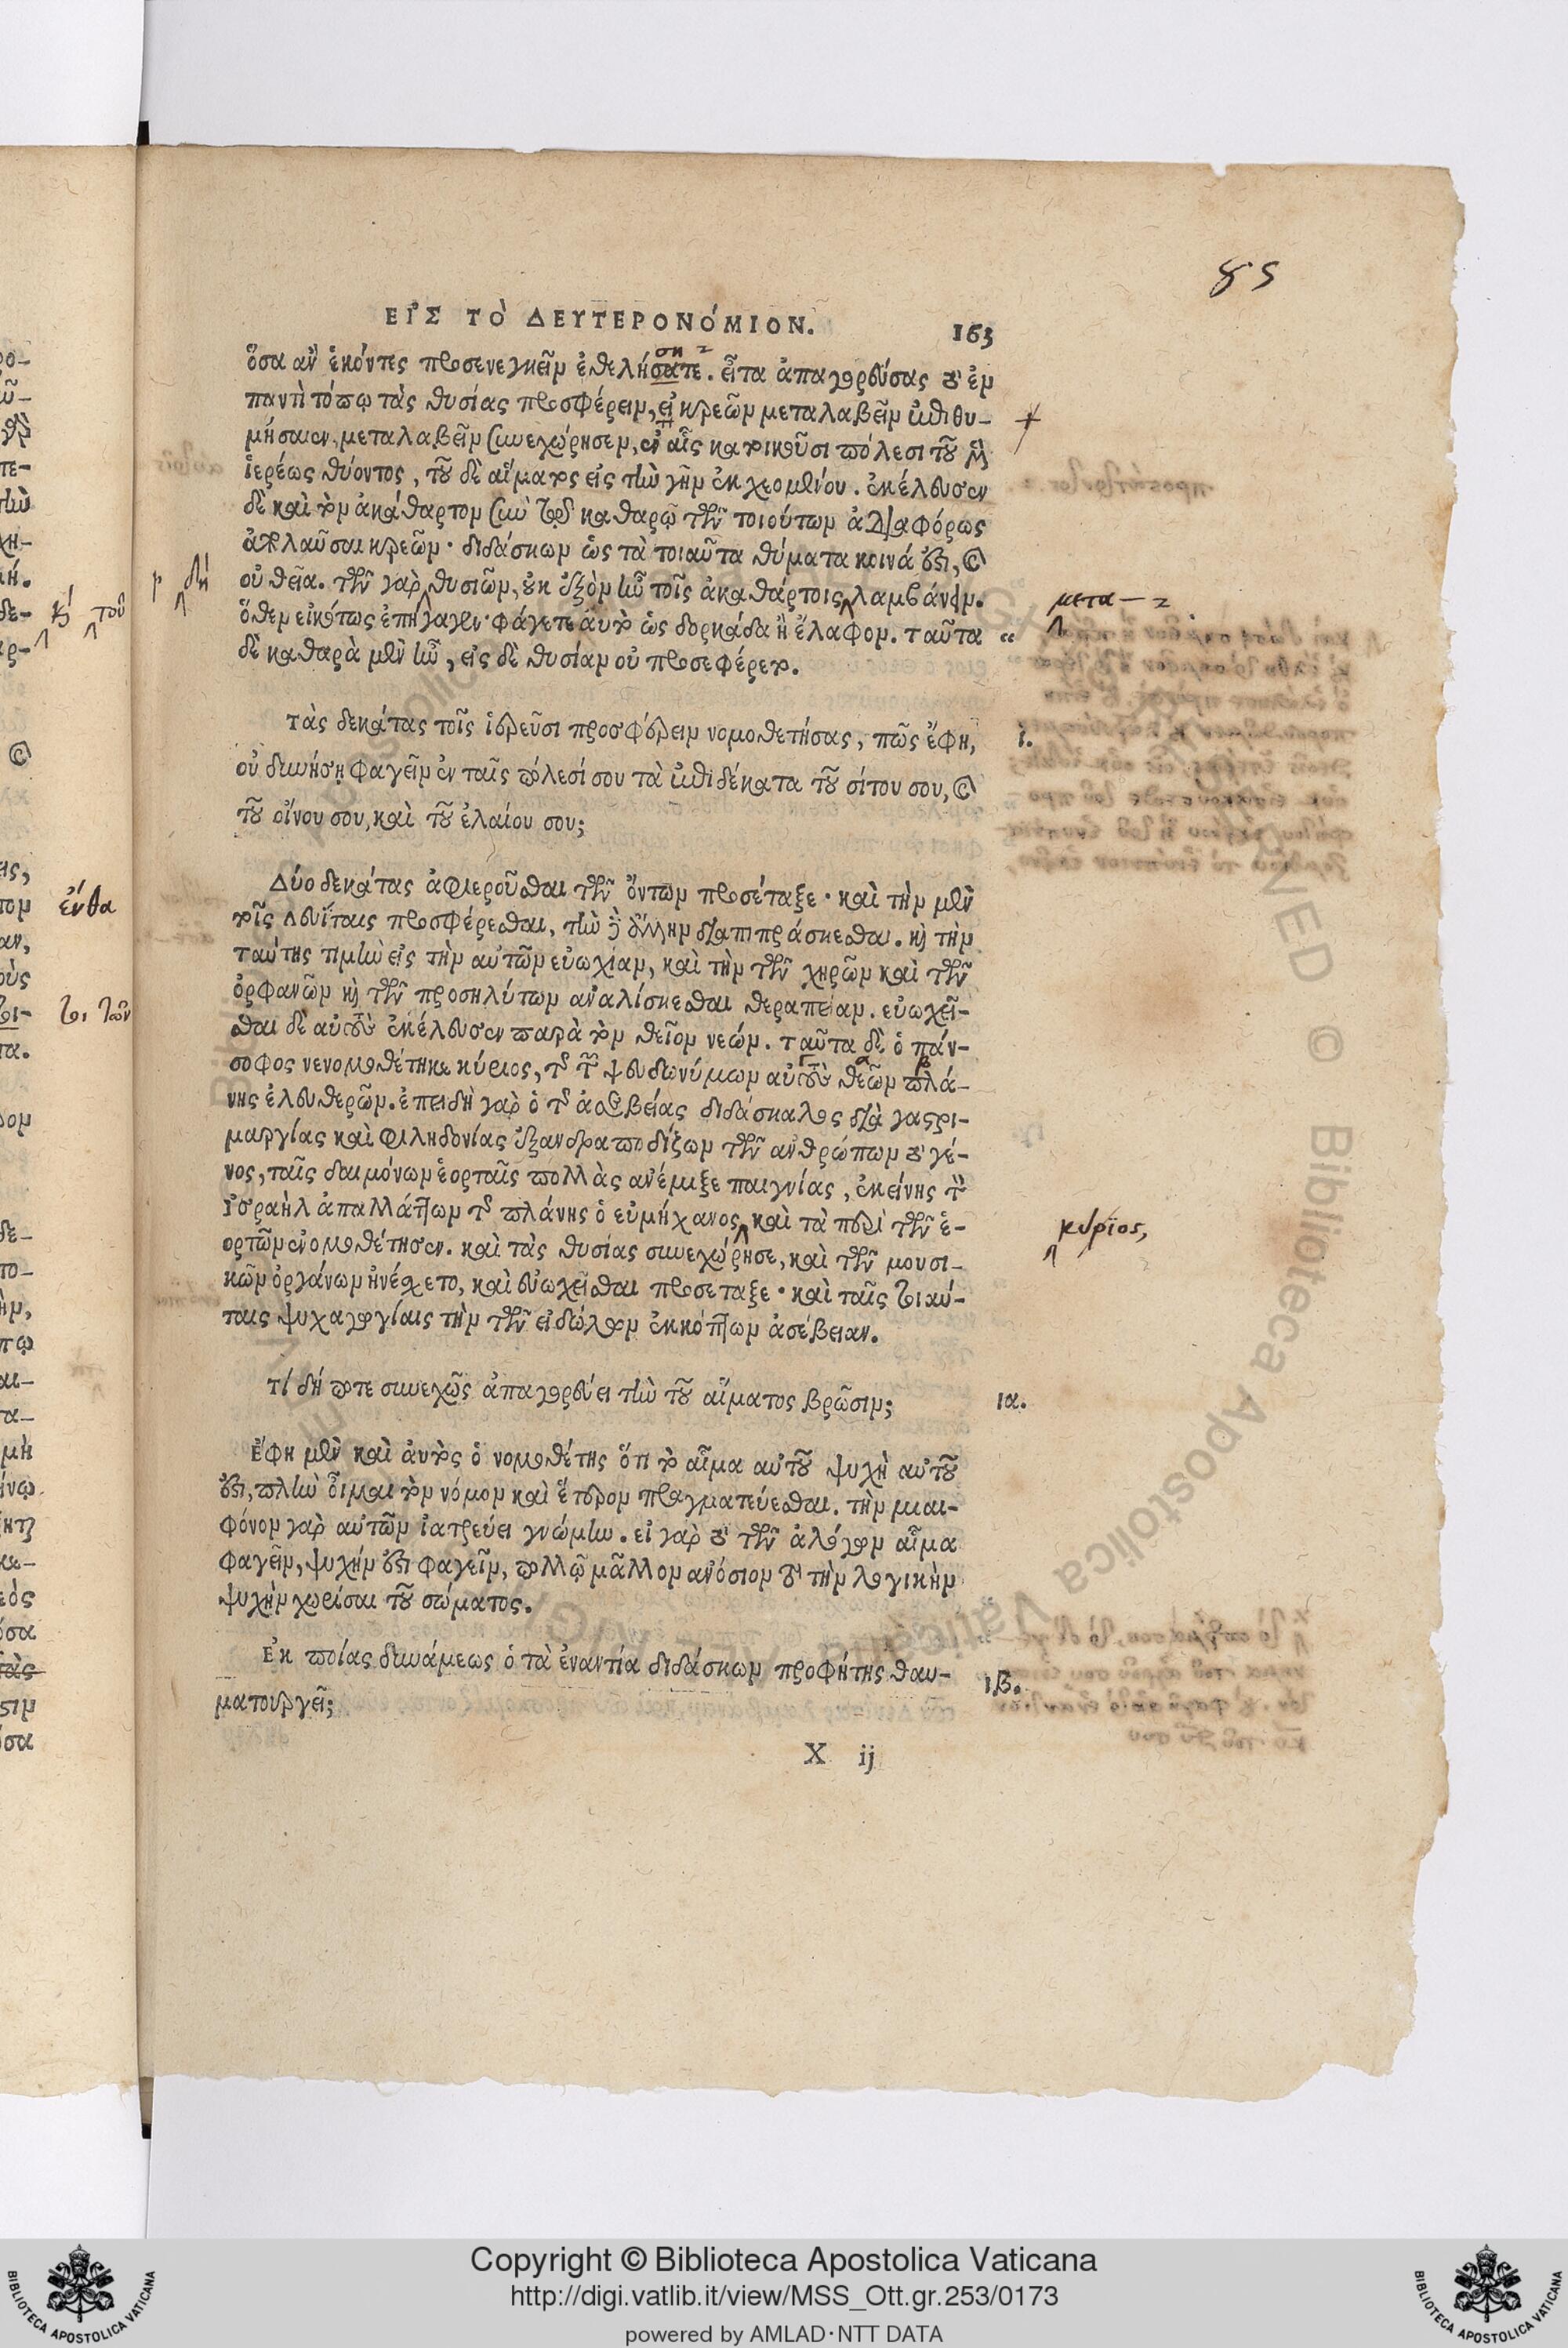 85
ΕΙ᾿Σ ΤΟ` ΔΕΥΤΕΡΟΝΟ´ΜΙΟΝ. 163
ὅσα ἂν ἑκόντες προσενεγκεῖν ἐθελήσατε. εἶτα ἀπαγορεύσας τὸ ἐν
ση 2
παντὶ τόπῳ τὰς θυσίας προσφέρειν, εἰ κρεῶν μεταλαβεῖν ἐπιθυ-
μήσαιεν, μεταλαβεῖν συνεχώρησεν, ἐν αἷς κατοικοῦσι πόλεσι τοῦ μὴ
ἱερέως θύοντος, τοῦ δὲ αἵματος εἰς τὴν γῆν ἐκχεομένου. ἐκέλευσεν
δὲ καὶ τὸν ἀκάθαρτον σὺν τῷ καθαρῷ τῶν τοιούτων ἀδιαφόρως
ἀπολαῦσαι κρεῶν· διδάσκων ὡς τὰ τοιαῦτα θύματα κοινά ἐστι, καὶ
οὐ θεῖα. τῶν γὰρ θυσιῶν, οὐκ ἐξὸν ἦν τοῖς ἀκαθάρτοις λαμβάνειν.
δὴ
μετα— 2
ὅθεν εἰκότως ἐπήγαγεν· φάγετε αὐτὸ ὡς δορκάδα ἢ ἔλαφον. ταῦτα “
δὲ καθαρὰ μὲν ἦν, εἰς δὲ θυσίαν οὐ προσεφέρετο.
τὰς δεκάτας τοῖς ἱερεῦσι προσφέρειν νομοθετήσας, πῶς ἔφη, ι.
οὐ δυνήσῃ φαγεῖν ἐν ταῖς πόλεσί σου τὰ ἐπιδέκατα τοῦ σίτου σου, καὶ
τοῦ οἴνου σου, καὶ τοῦ ἐλαίου σου;
Δύο δεκάτας ἀφιεροῦσθαι τῶν ὄντων προσέταξε· καὶ τὴν μὲν
τοῖς λευΐταις προσφέρεσθαι, τὴν δὲ ἄλλην διαπιπράσκεσθαι. καὶ τὴν
ταύτης τιμὴν εἰς τὴν αὐτῶν εὐωχίαν, καὶ τὴν τῶν χηρῶν καὶ τῶν
ὀρφανῶν καὶ τῶν προσηλύτων ἀναλίσκεσθαι θεραπείαν. εὐωχεῖ-
σθαι δὲ αὐτοὺς ἐκέλευσεν παρὰ τὸν θεῖον νεών. ταῦτα δὲ ὁ πάν-
σοφος νενομοθέτηκε κύριος, τῆς τῶν ψευδωνύμων αὐτοὺς θεῶν πλά-
γ α β
νης ἐλευθερῶν. ἐπειδὴ γὰρ ὁ τῆς ἀσεβείας διδάσκαλος διὰ γαστρι-
μαργίας καὶ φιληδονίας ἐξανδραποδίζων τῶν ἀνθρώπων τὸ γέ-
νος, ταῖς δαιμόνων ἑορταῖς πολλὰς ἀνέμιξε παιγνίας, ἐκείνης τὸν
Ἰσραὴλ ἀπαλλάττων τῆς πλάνης ὁ εὐμήχανος, καὶ τὰ περὶ τῶν ἑ-
κύριος,
ορτῶν ἐνομοθέτησεν. καὶ τὰς θυσίας συνεχώρησε, καὶ τῶν μουσι-
κῶν ὀργάνων ἠνέσχετο, καὶ εὐωχεῖσθαι προσέταξε· καὶ ταῖς τοιαύ-
ταις ψυχαγωγίαις τὴν τῶν εἰδώλων ἐκκόπτων ἀσέβειαν.
τί δή ποτε συνεχῶς ἀπαγορεύει τὴν τοῦ αἵματος βρῶσιν; ια.
Ἔφη μὲν καὶ αὐτὸς ὁ νομοθέτης ὅτι τὸ αἷμα αὐτοῦ ψυχὴ αὐτοῦ
ἐστι, πλὴν οἶμαι τὸν νόμον καὶ ἕτερον πραγματεύεσθαι. τὴν μιαι-
φόνον γὰρ αὐτῶν ἰατρεύει γνώμην. εἰ γὰρ τὸ τῶν ἀλόγων αἷμα
φαγεῖν, ψυχήν ἐστι φαγεῖν, πολλῷ μᾶλλον ἀνόσιον τὸ τὴν λογικὴν
ψυχὴν χωρίσαι τοῦ σώματος.
Ἐκ ποίας δυνάμεως ὁ τὰ ἐναντία διδάσκων προφήτης θαυ- ιβ.
ματουργεῖ;
X ij
ἔνθα
Copyright © Biblioteca Apostolica Vaticana
http://digi.vatlib.it/view/MSS_Ott.gr.253/0173
powered by AMLAD·NTT DATA
BIBLIOTECA APOSTOLICA VATICANA
BIBLIOTECA APOSTOLICA VATICANA